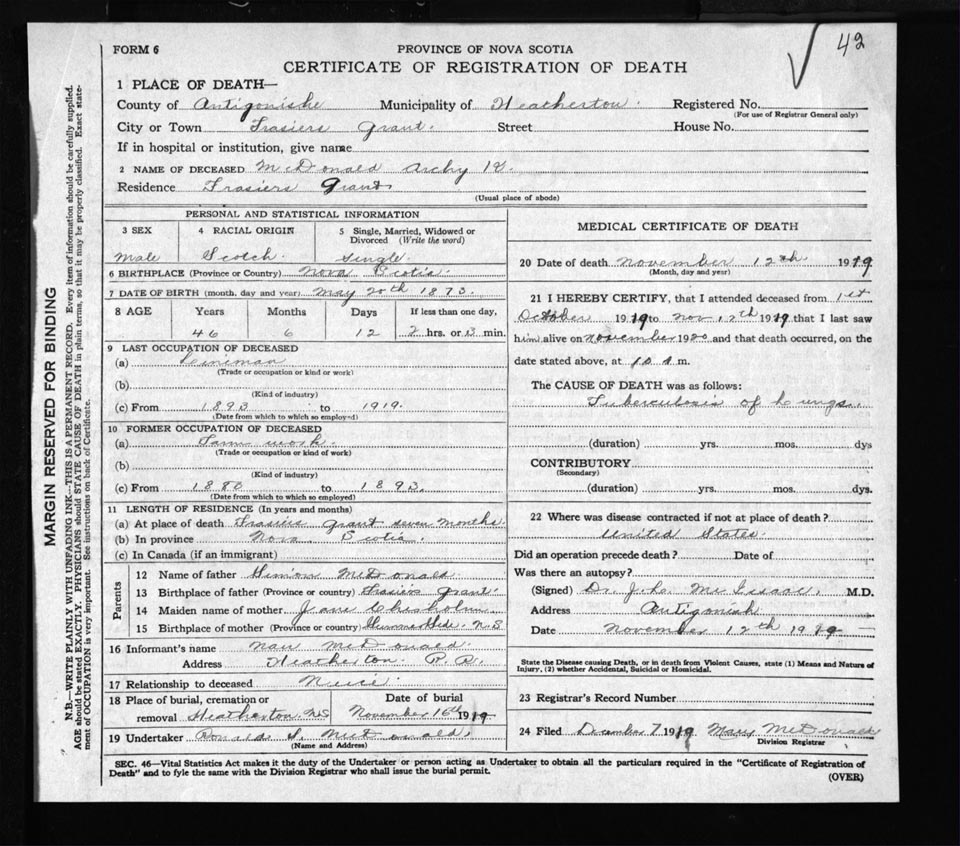 42
FORM 6
PROVINCE OF NOVA SCOTIA
CERTIFICATE OF REGISTRATION OF DEATH
1 PLACE OF DEATH—
County of Antigonishe Municipality of Heatherton. Registered No.
(For use of Registrar General only)
City or Town Frasiers Grant. Street House No.
If in hospital or institution, give name
2 NAME OF DECEASED McDonald Archy
Residence Frasiers Grant
(Usual place of abode)
PERSONAL AND STATISTICAL INFORMATION
3 SEX 4 RACIAL ORIGIN 5 Single, Married, Widowed or Divorced (Write the word)
Male Scotch Single
6 BIRTHPLACE (Province or Country) Nova Scotia.
7 DATE OF BIRTH (month, day and year) May 20th 1873.
8 AGE Years Months Days If less than one day,
46 6 12 hrs. or min.
9 LAST OCCUPATION OF DECEASED
(a)
(Trade or occupation or kind or work)
(b)
(Kind of industry)
(c) From 1893 to 1919.
(Date from which to which employed)
10 FORMER OCCUPATION OF DECEASED
(a) Farm work.
(Trade or occupation or kind of work)
(b)
(Kind of industry)
(c) From 1880 to 1893.
(Date from which to which so employed)
11 LENGTH OF RESIDENCE (In years and months)
(a) At place of death Frasiers Grant seven months
(b) In province Nova Scotia.
(c) In Canada (if an immigrant)
Parents
12 Name of father Simon McDonald.
13 Birthplace of father (Province or country) Frasiers Grant.
14 Maiden name of mother Jane Chisholm
15 Birthplace of mother (Province or country) N.S
16 Informant's name McDonald.
Address Heatherton R.R.
17 Relationship to deceased Neice
18 Place of burial, cremation or removal Heatherton NS Date of burial November 16th 1919
19 Undertaker Ronald McDonald.
(Name and Address)
MEDICAL CERTIFICATE OF DEATH
20 Date of death November 12th 1919
(Month, day and year)
21 I HEREBY CERTIFY, that I attended deceased from 1st
October 1919 to Nov 12th 1919 that I last saw
him alive on November 19 and that death occurred, on the
date stated above, at 10 m.
The CAUSE OF DEATH was as follows:
Tuberculosis of Lungs.
(duration) yrs. mos. dys
CONTRIBUTORY
(Secondary)
(duration) yrs. mos. dys.
22 Where was disease contracted if not at place of death?
United States.
Did an operation precede death? Date of
Was there an autopsy?
(Signed) Dr. J.L. McIsaac. M.D.
Address Antigonish
Date November 12th 1919
State the Disease causing Death, or in death from Violent Causes, state (1) Means and Nature of
Injury, (2) whether Accidental, Suicidal or Homicidal.
23 Registrar's Record Number
24 Filed December 7 1919 Mary McDonald
Division Registrar
SEC. 46—Vital Statistics Act makes it the duty of the Undertaker or person acting as Undertaker to obtain all the particulars required in the "Certificate of Registration of
Death" and to fyle the same with the Division Registrar who shall issue the burial permit.
(OVER)
MARGIN RESERVED FOR BINDING
N.B.—WRITE PLAINLY WITH UNFADING INK—THIS IS A PERMANENT RECORD. Every item of information should be carefully supplied.
AGE should be stated EXACTLY. PHYSICIANS should STATE CAUSE OF DEATH in plain terms, so that it may be properly classified. Exact state-
ment of OCCUPATION is very important. See instructions on back of Certificate.